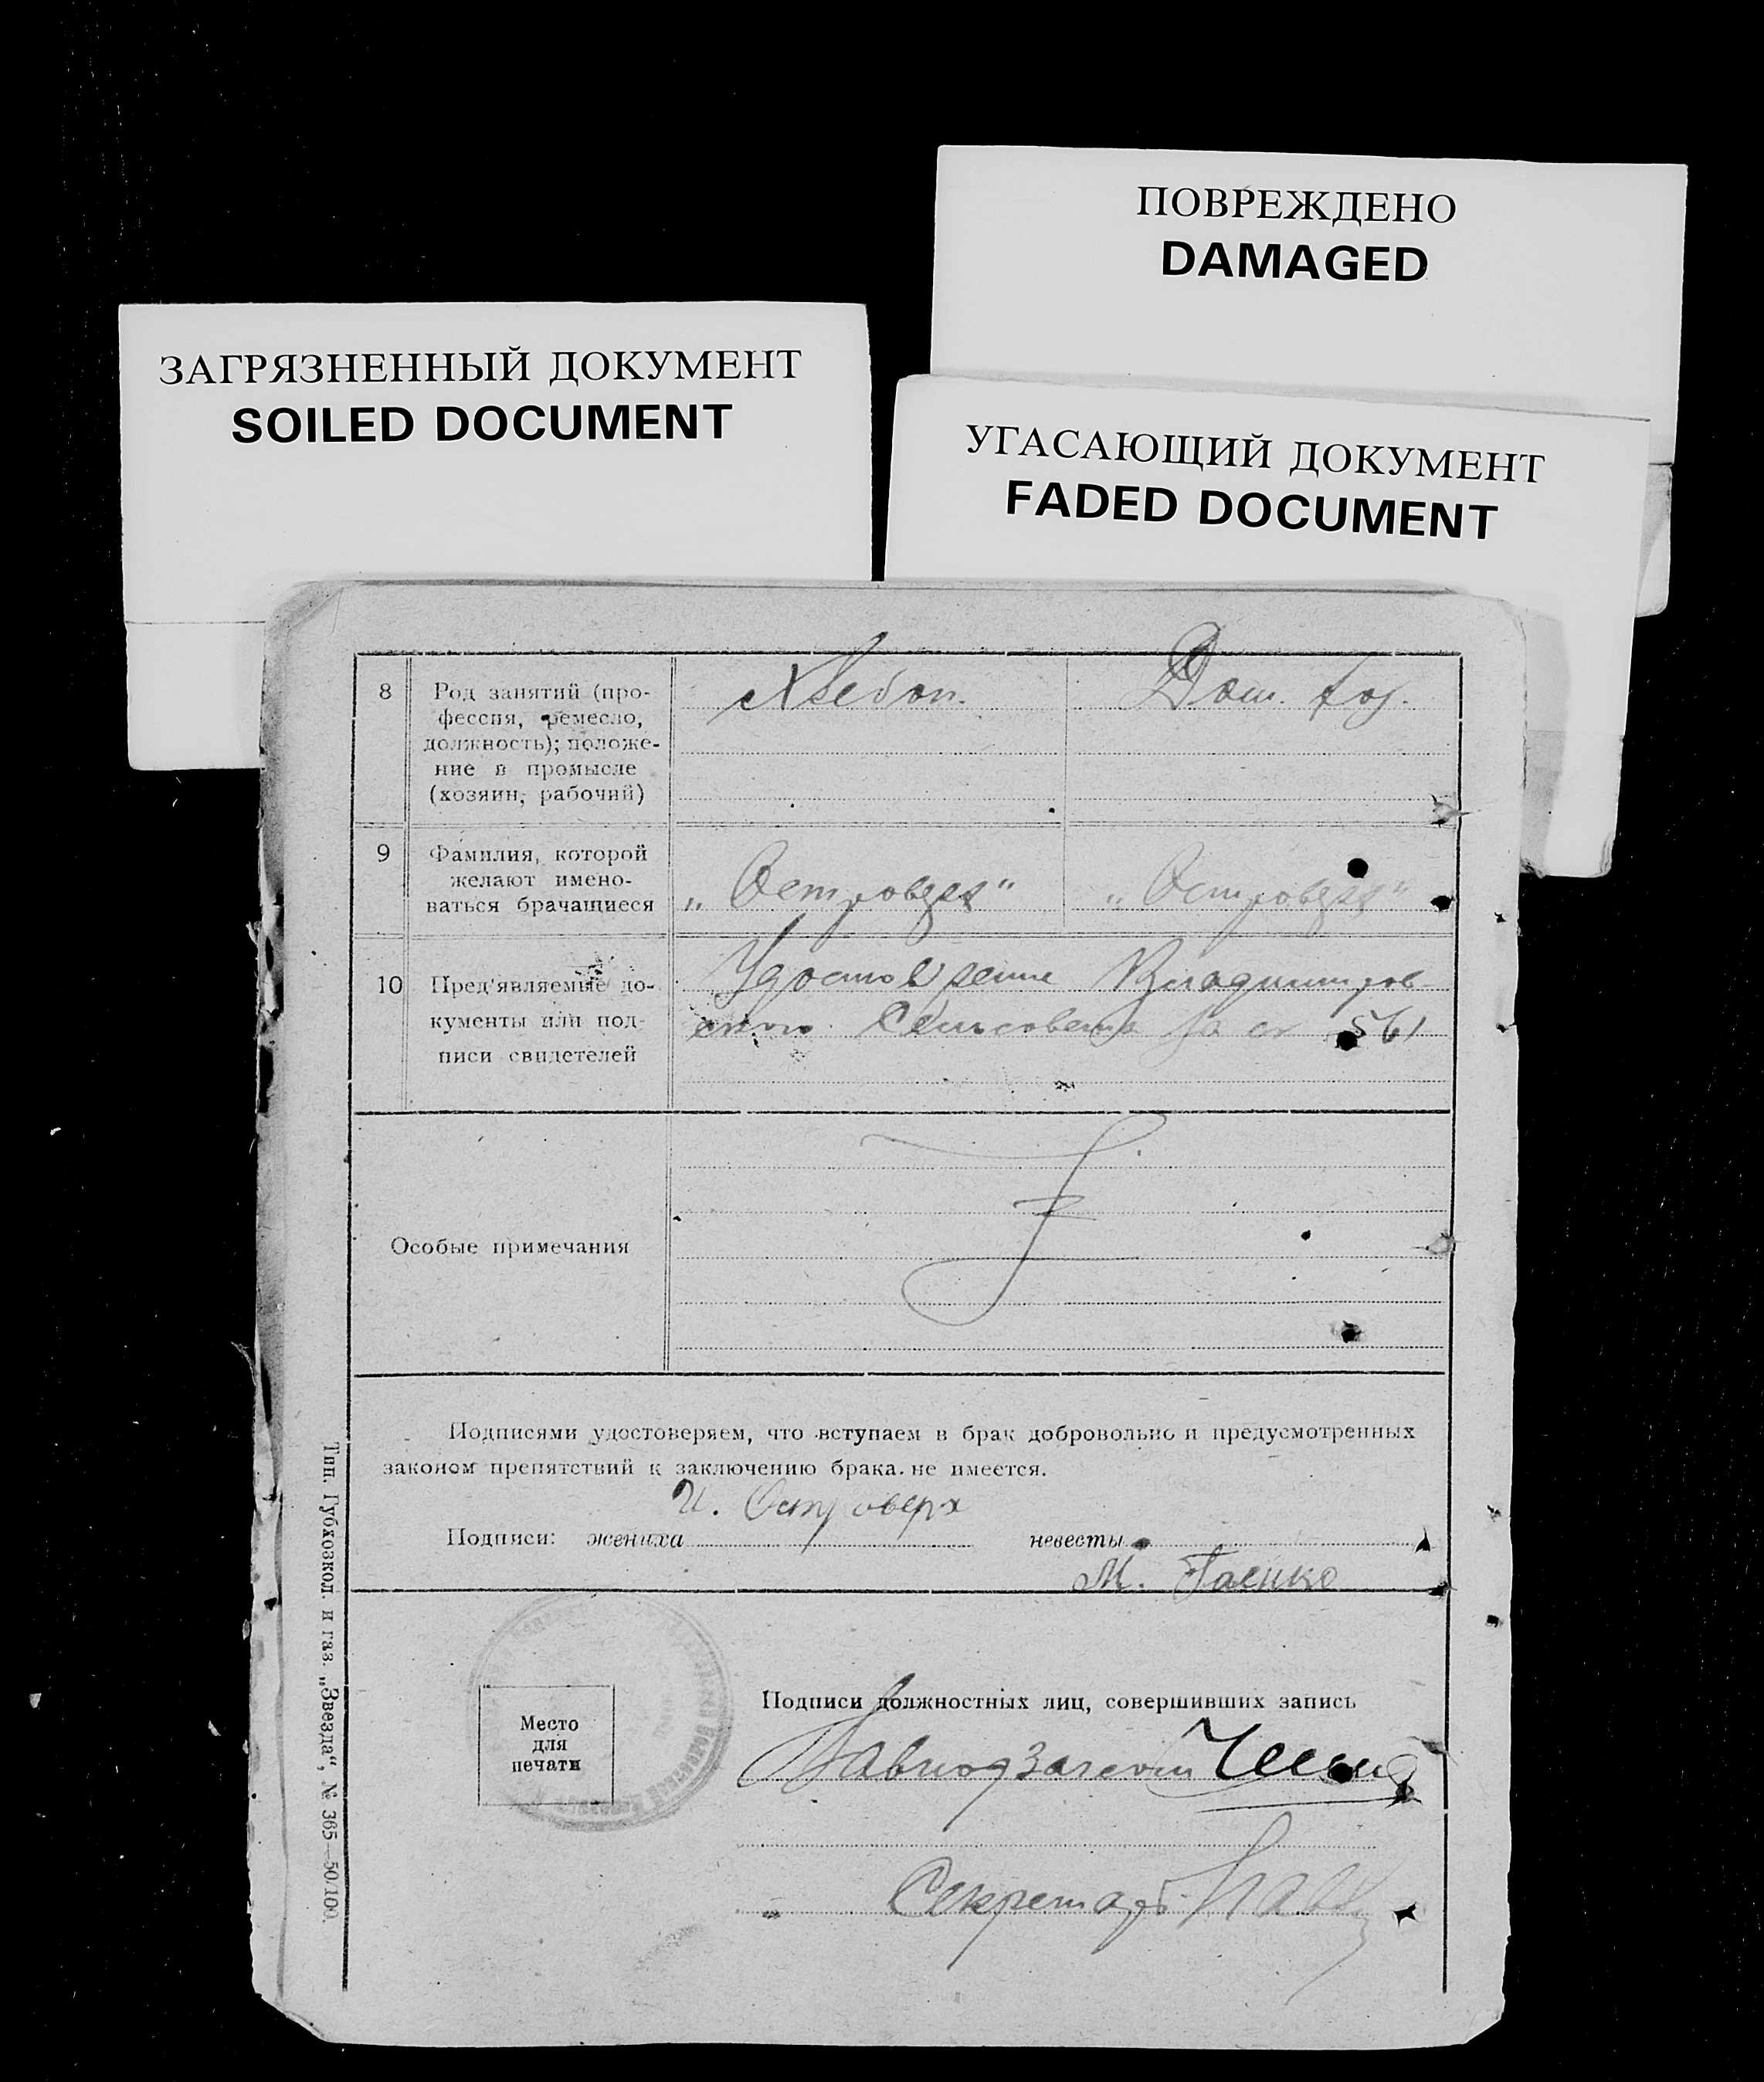 ПОВРЕЖДЕНО
DAMAGED
ЗАГРЯЗНЕННЫЙ ДОКУМЕНТ
SOILED DOCUMENT
УГАСАЮЩИЙ ДОКУМЕНТ
FADED DOCUMENT
8
Род занятий (про-
фессия, ремесло,
должность); положе-
ние в промысле
(хозяин, рабочий)
Хлебоп.
Дом. хоз.
9
Фамилия, которой
желают имено-
ваться брачащиеся
„Островерх“
„Островерх“
10
Пред'являемые до-
кументы или под-
писи свидетелей
Удостоверение Владимиров-
ского Сельсовета за № 561
Особые примечания
Подписями удостоверяем, что вступаем в брак добровольно и предусмотренных
законом препятствий к заключению брака не имеется.
И. Островерх
Подписи: жениха
невесты
М. Гаенко
Место
для
печати
Подписи должностных лиц, совершивших запись
Завподзагсом
Секретарь
Тип. Губхозкол. и газ. „Звезда“, № 365—50/100.